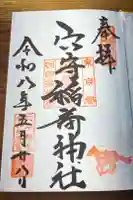 奉拝
穴守稲荷神社
令和八年五月廿八日